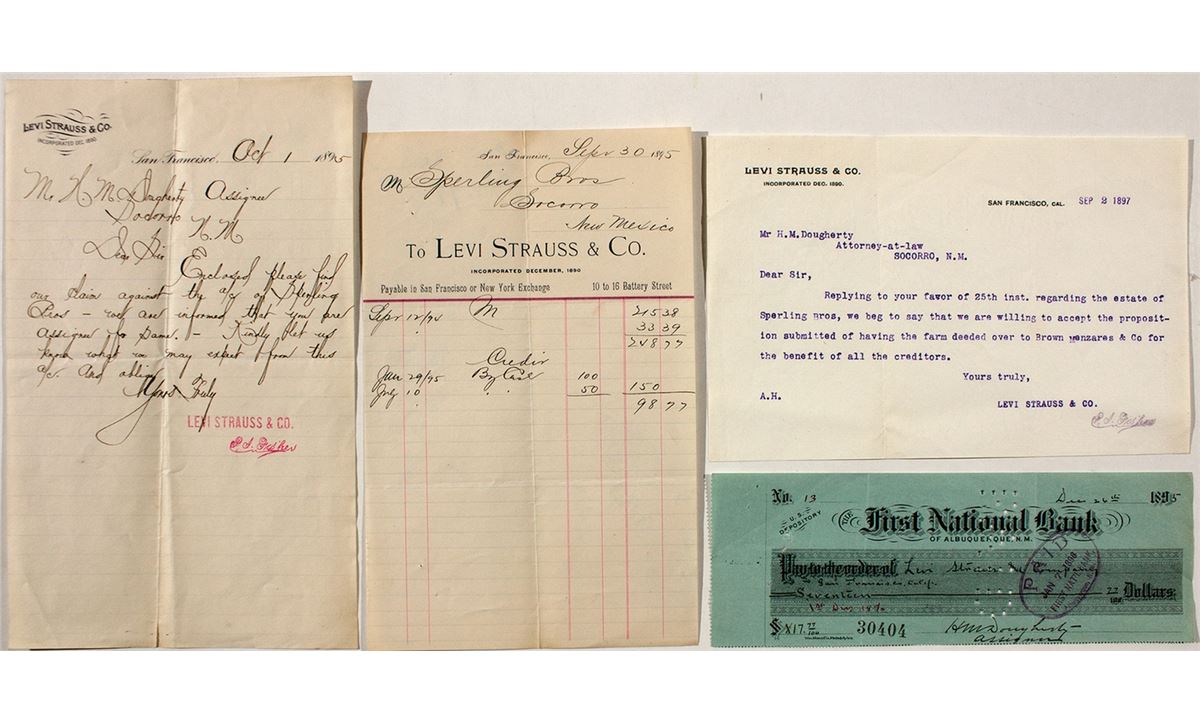 LEVI STRAUSS & CO.
INCORPORATED DEC. 1890
San Francisco, Oct 1 1895
M. H. M. Dougherty Assignee
Socorro N. M
Dear Sir
Enclosed please find
our claim against the a/c of Sperling
Bros - we are informed that you are
assignee for same. - Kindly let us
know what we may expect from this
a/c. And oblige
Yours Truly
LEVI STRAUSS & CO.
San Francisco, Sept 30 1895
M Sperling Bros
Socorro
New Mexico
TO LEVI STRAUSS & CO.
INCORPORATED DECEMBER, 1890
Payable in San Francisco or New York Exchange 10 to 16 Battery Street
Sept 12/94 M 215 38
" 33 39
248 77
Credit
Jan 29/95 By Cash 100
July 10 " " 50 150
98 77
LEVI STRAUSS & CO.
INCORPORATED DEC. 1890.
SAN FRANCISCO, CAL. SEP 2 1897
Mr H.M.Dougherty
Attorney-at-law
SOCORRO, N.M.
Dear Sir,
Replying to your favor of 25th inst. regarding the estate of
Sperling Bros, we beg to say that we are willing to accept the proposit-
ion submitted of having the farm deeded over to Brown Manzares & Co for
the benefit of all the creditors.
Yours truly,
A.H. LEVI STRAUSS & CO.
No. 13 Dec 26th 1895
U.S. DEPOSITORY
THE First National Bank
OF ALBUQUERQUE, N.M.
Pay to the order of Levi Strauss and Company
San Francisco, Calif.
Seventeen 77/100 Dollars
1st Div 18%
PAID JAN 7 1896 FIRST NAT'L BANK
$ X17.77/100 30404 H M Dougherty
assignee